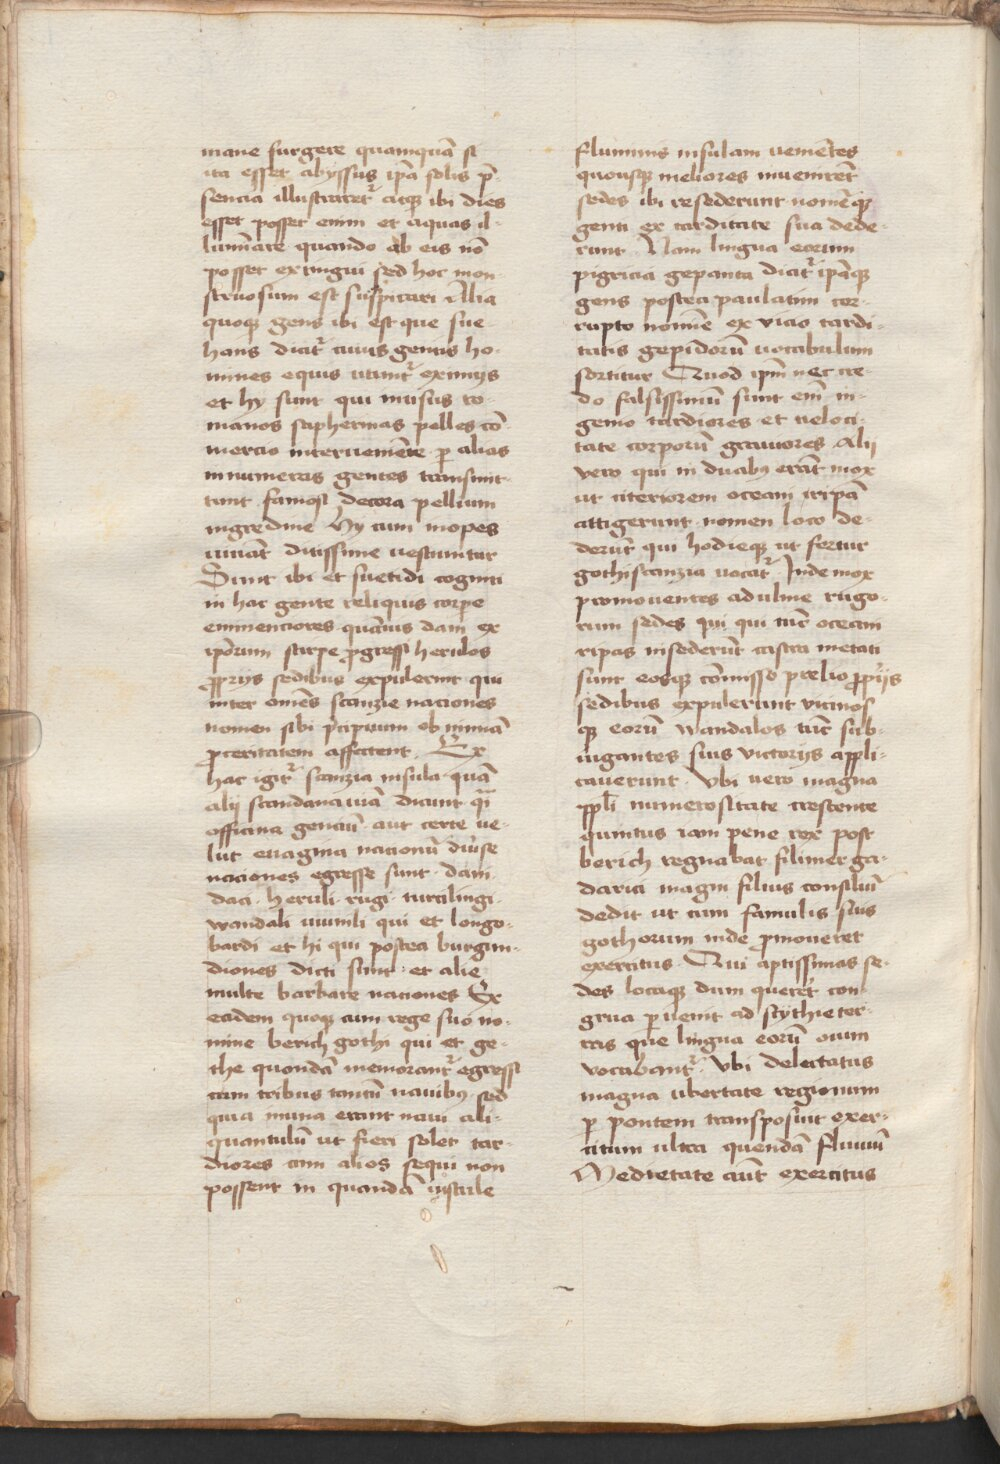 mane surgere quamquā si
ita esset abyssus ipā solis p̄-
sencia illustraret᷑ atq̨ ibi dies
esset posset enim et aquas il-
lumīare quando ab eis nō
posset extingui sed hoc mon-
struosum est suspicari Alia
quoq̨ gens ibi est que sue-
hans dicit᷑ cuius gentis ho-
mines equis utunt᷑ eximijs
et hy sunt qui in usus ro-
manos saphirinas pelles cō-
mercio interueniēte ꝑ alias
innumeras gentes transmit-
tunt famosi decora pellium
nigredine Hy cum inopes
uiuāt ditissime uestiuntur
Sunt ibi et suetidi cogniti
in hac gente reliquis corpe
eminenciores quāuis dani ex
ipōrum stirpe ꝓgressi herulos
ꝓprijs sedibus expulerint qui
inter omēs scanzie naciones
nomen sibi p̄cipuum ob nimiā
ꝓceritatem affectent. Ex
hac igit᷑ scanzia insula quā
alij scandanauiā dicunt q̄i
officina genciū aut certe ue-
lut euagina nacionū diuse
naciones egresse sunt. dani
daci. heruli. rugi. turcilingi.
wandali uiunli qui et longo-
bardi et hi qui postea burgun-
diones dicti sunt. et alie
multe barbare naciones Ex
eadem quoq̨ cum rege suo no-
mine berich gothi qui et ge-
the quondā memorant᷑ egressi
cum tribus tantū nauibus sed
quia in una erant naui ali-
quantulū ut fieri solet tar-
diores cum alios sequi non
possent in quandā uistule
fluminis insulam ueniētes
quousq̨ meliores inuenirēt
sedes ibi resederunt nomēq̨
genti ex tarditate sua dede-
runt Nam lingua eorum
pigricia gepanta dicit᷑ ipāq̨
gens postea paulatim cor-
rupto nomīe ex vicio tardi-
tatis gepidorū uocabulum
sortitur Quod ipm̄ nec cre-
do falsissimū sunt em̄ in-
genio tardiores et ueloci-
tate corporū grauiores Alij
vero qui in duabus erāt mox
ut citeriorem oceani ripā
attigerunt nomen loco de-
derūt qui hodieq̨ ut fertur
gothiscanzia uocat᷑. Inde mox
promouentes ad ulme rugo-
rum sedes qui qui tūc oceani
ripas insederūt castra metati
sunt eosq̨ cōmisso prelio ꝓprijs
sedibus expulerunt vicinos
q̨ eorū wandalos tūc sub-
iugantes suis victorijs appli-
cauerunt. Vbi uero magna
ppl̄i numerositate crescente
quintus iam pene rex post
berich regnabat filimer ga-
darici magni filius consiliū
dedit ut cum famulis suis
gothorum inde ꝓmoueret
exercitus. Qui aptissimas se-
des locaq̨ dum querēt con-
grua ꝑuenit ad scythie ter-
ras que lingua eorū ouim
vocabant᷑. Vbi delectatus
magna ubertate regionum
ꝑ pontem transposuit exer-
citum ultra quendā fluuiū
Medietate aūt exercitus